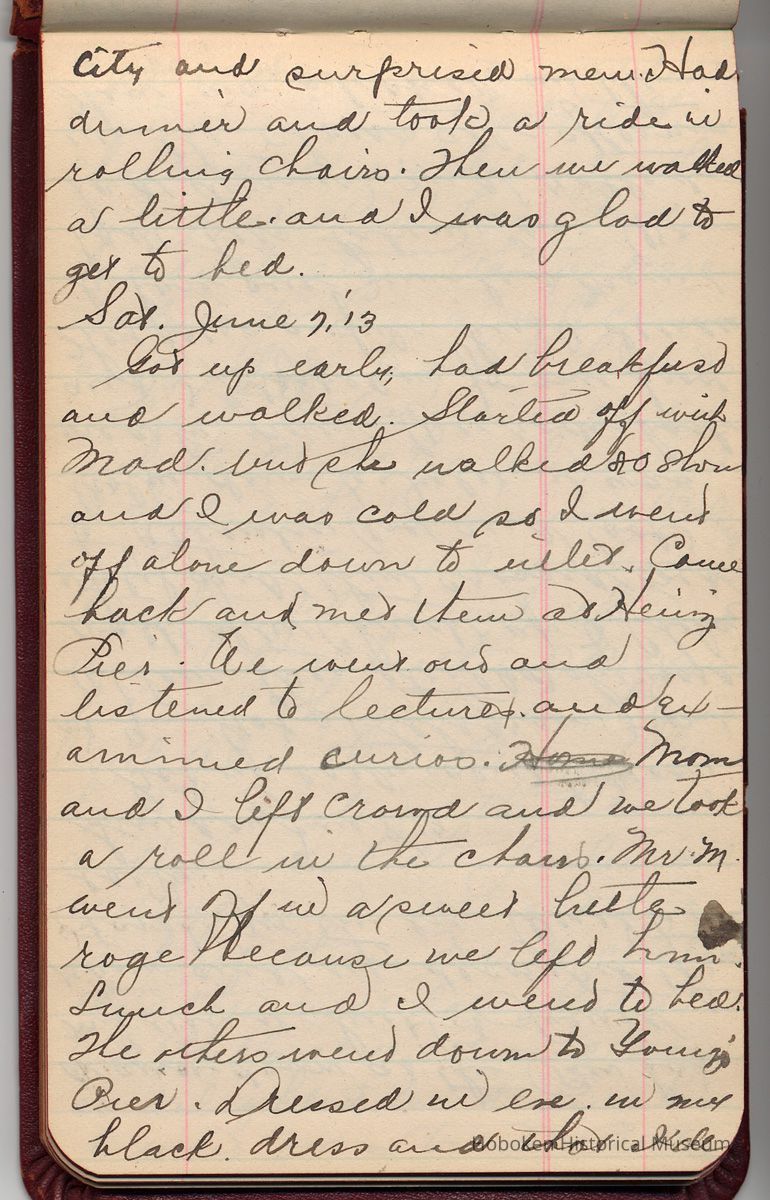 City and surprised mem. Had
dinner and took a ride in
rolling chairs. Then we walked
a little. and I was glad to
get to bed.
Sat. June 7, '13
Got up early, had breakfast
and walked. Started off with
Mad. but she walked so slow
and I was cold so I went
off alone down to inlet. Came
back and met them at Heinz
Pier. We went out and
listened to lectures. and ex-
aminned curios. Home Mom
and I left crowd and we took
a roll in the chairs. Mr. M.
went off in a sweet little
rage because we left him.
Lunch and I went to bed.
The others went down to Young's
Pier. Dressed in eve. in my
black dress and
Hoboken Historical Museum